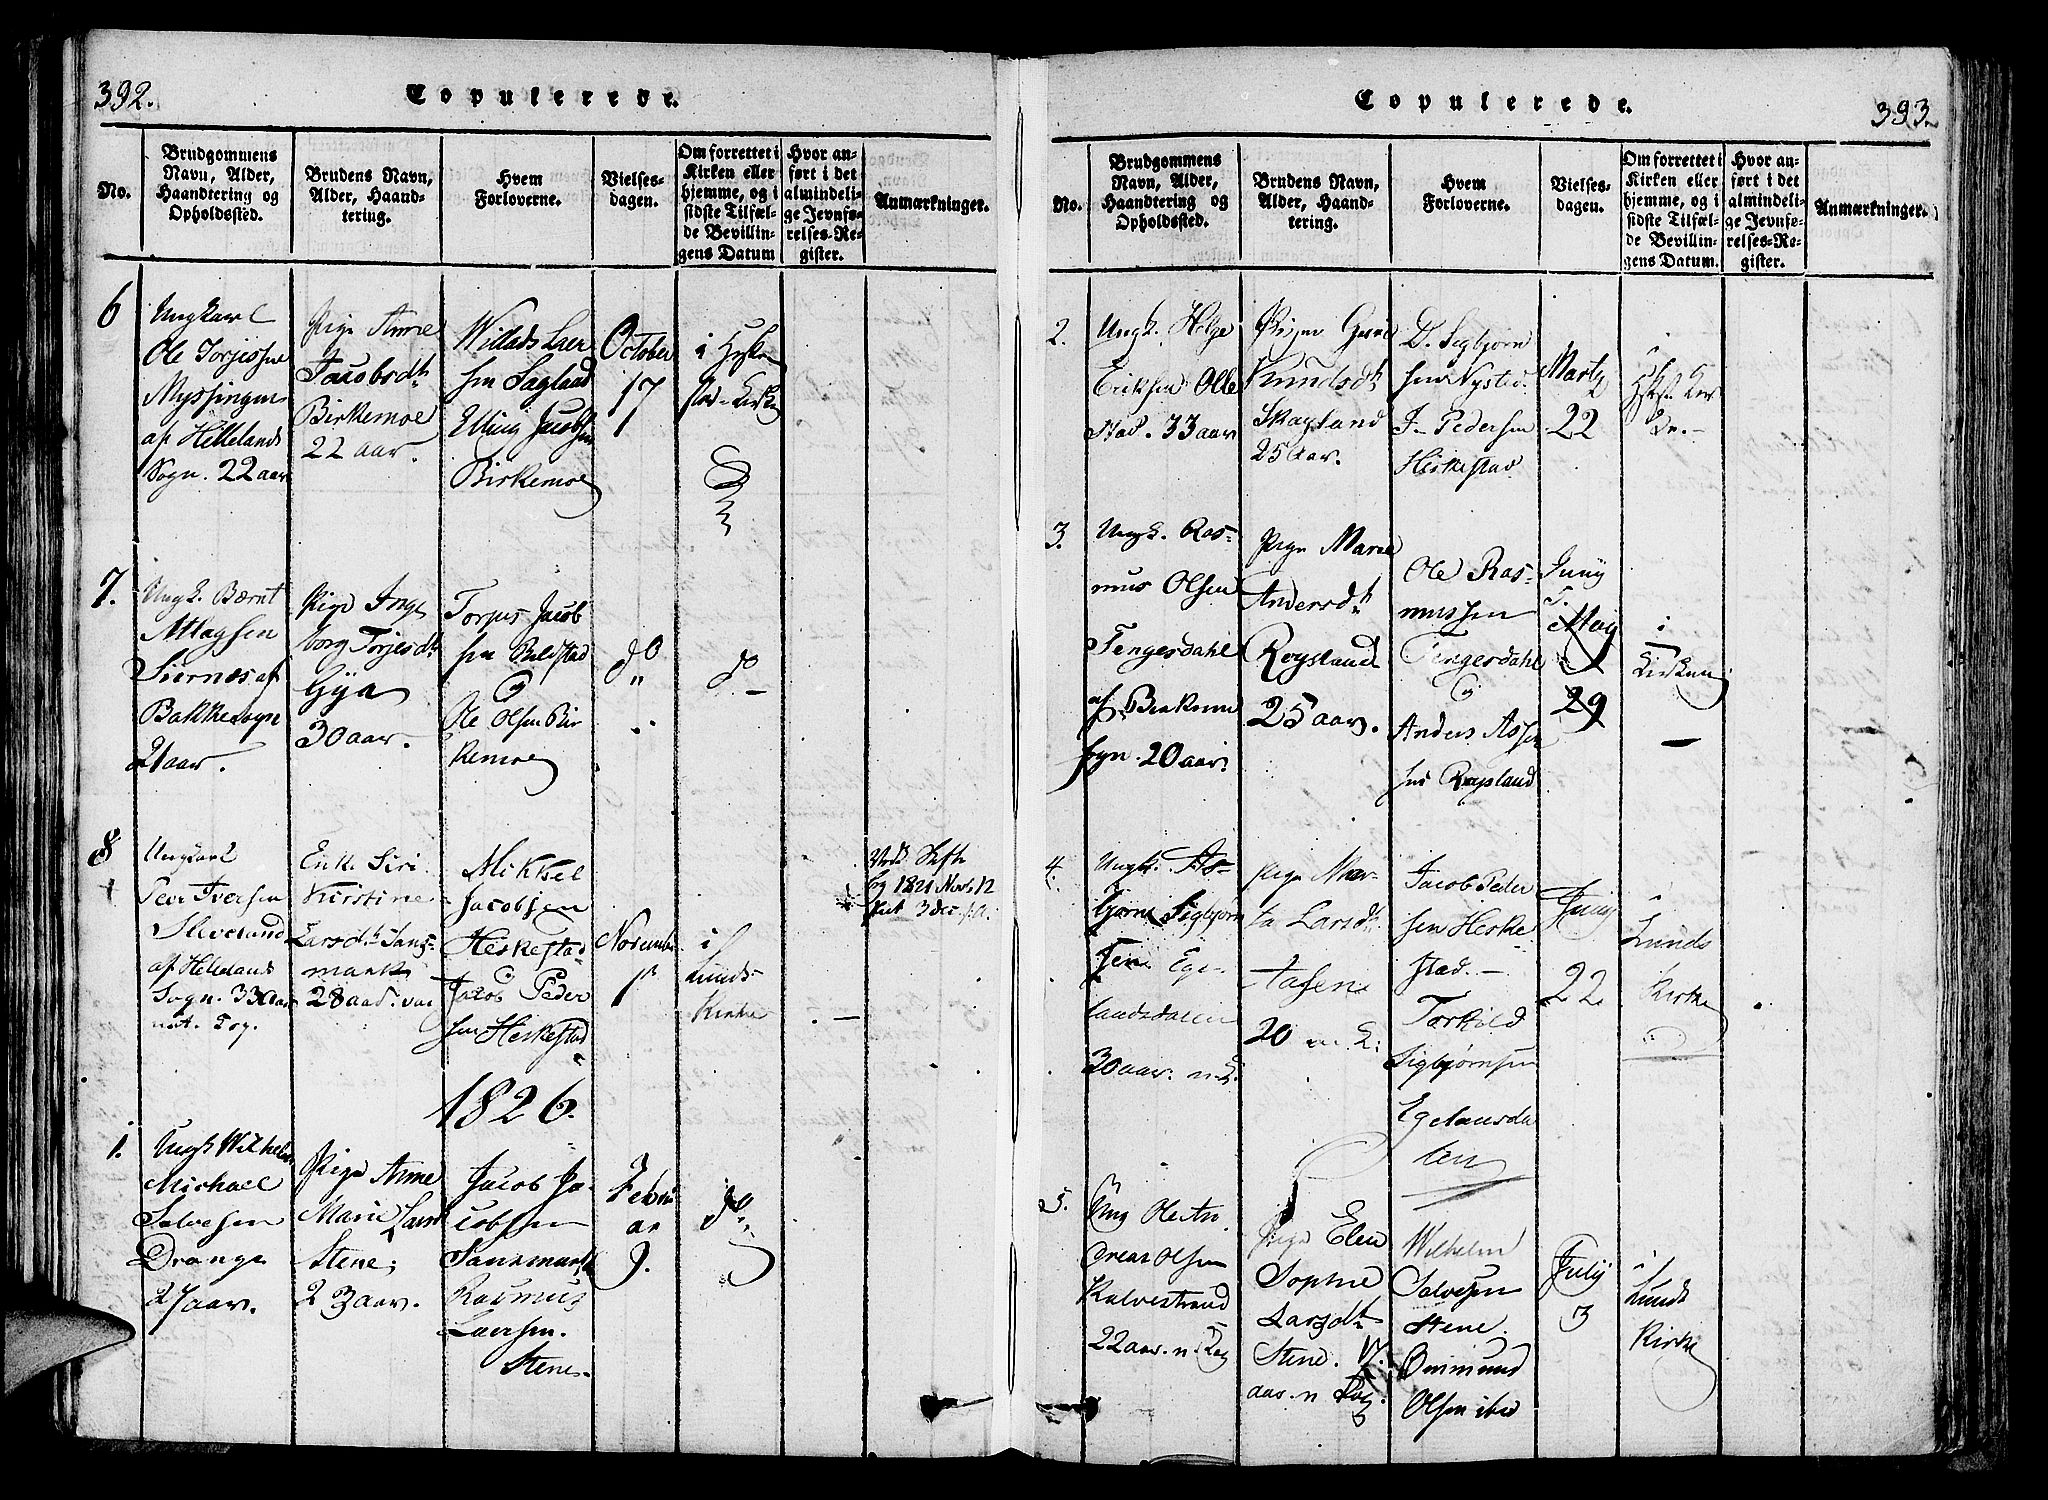 392.
Copulerede.
No.
Brudgommens
Navn, Alder,
Haandtering og
Opholdssted.
Brudens Navn,
Alder, Haand-
tering.
Hvem
Forloverne.
Vielses-
dagen.
Om forrettet i
Kirken eller
hjemme, og i
sidste Tilfæl-
de Bevillin-
gens Datum
Hvor an-
ført i det
almindeli-
ge Jevnfø-
relses-Re-
gister.
Anmærkninger.
6
Ungkarl
Ole Torjessen
Myssingen
af Hellelands
Sogn. 22 aar
Pige Anne
Jacobsdt
Birkemoe
22 aar.
Willads
sen
Elling Jacobsen
Birkemoe
October
17
i
Kirke
7.
Ungk. Bærnt
Atlagsen
Siernæs af
Bakkesogn
21 aar.
Pige Inge
borg Torjesdt
Gya
30 aar.
Torjus Jacob
sen
Ole Olsen Bir
kemoe
do
do
8
Ungkarl
Peder Iversen
Sleveland
af Hellelands
Sogn. 33 aar
Enke Siri
Kirstine
Larsdt Sans-
mark
28 aar.
Mikkel
Jacobsen
Heskestad
Jacob Peder
sen Heskestad
November
i
Lunds
Kirke
1821 Nov. 12
1826.
1.
Ungk Wilhelm
Michael
Salvesen
Drange
27 aar.
Pige Anne
Marie Lars
Stene,
23 aar.
Jacob Ja-
cobsen
Sansmark
Rasmus
Larsen
Stene
Februar
9.
do
393.
Copulerede.
No.
Brudgommens
Navn, Alder,
Haandtering og
Opholdssted.
Brudens Navn,
Alder, Haand-
tering.
Hvem
Forloverne.
Vielses-
dagen.
Om forrettet i
Kirken eller
hjemme, og i
sidste Tilfæl-
de Bevillin-
gens Datum.
Hvor an-
ført i det
almindeli-
ge Jevnfø-
relses-Re-
gister.
Anmærkninger.
2.
Ungk. Helge
Eriksen Olle
stad. 33 aar
Pigen
Knudsdt
Skagland
25 aar.
D. Sigbjørn
sen Nysted
J. Pedersen
Heskestad
Marty
22
3.
Ungk. Ras-
mus Olsen
Tengesdahl
af
sogn. 20 aar.
Pige Maren
Andersdt
Røysland
25 aar.
Ole Ras-
mussen
Tengesdahl
og
Anders
sen Røysland
Juny
5.
May
29
i
Kirken
4.
Ungk. As-
bjørn Sigbjørn
sen Ege-
landsdalen
30 aar.
Pige Mar-
ta Larsdt
Aasen
20
Jacob Peder
sen Heske
stad.
Torkild
Sigbjørnsen
Egelandsda
len
Juny
22
i
Lunds
Kirke
5.
Ung Ole An
dreas Olsen
Kalvestrand
22 aar.
Pige Elen
Sophie
Larsdt
Stene. 17
aar.
Wilhelm
Salvesen
Stene.
Ommund
Olsen ibd
July
3
i
Lunds
Kirke